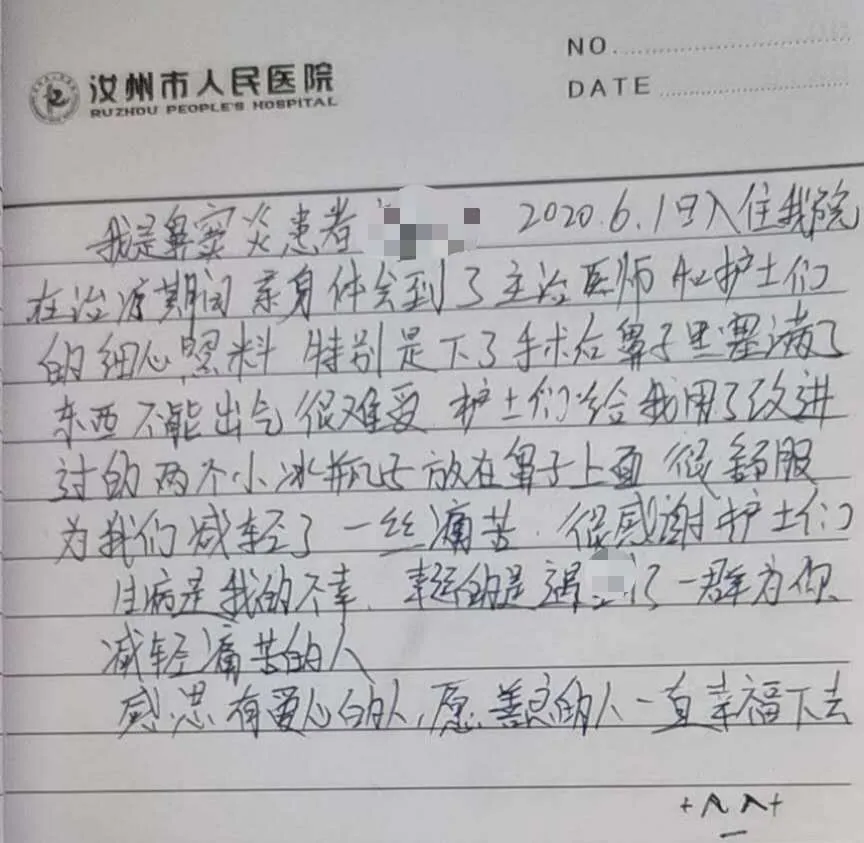 NO.
DATE
汝州市人民医院
RUZHOU PEOPLE'S HOSPITAL
我是鼻窦炎患者 2020.6.1日入住我院
在治疗期间亲身体会到了主治医师和护士们
的细心照料 特别是下了手术后鼻子里塞满了
东西不能出气很难受 护士们给我用了改进
过的两个小冰瓶 放在鼻子上面 很舒服
为我们减轻了一丝痛苦. 很感谢护士们
生病是我的不幸. 幸运的是遇 了一群为你
减轻痛苦的人
感恩有爱心的人,愿善良的人一直幸福下去